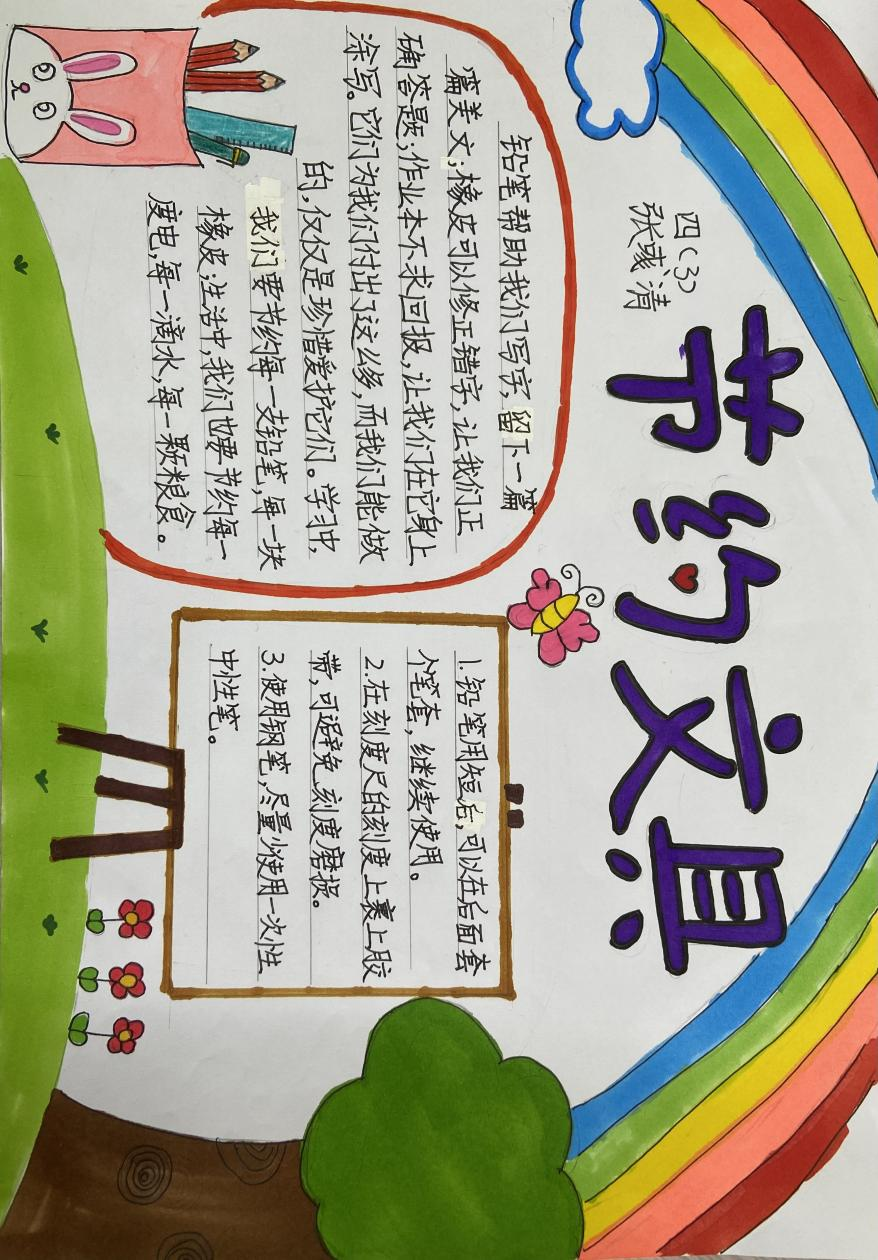 节约文具
四(3)
张彧清
铅笔帮助我们写字,留下一篇
篇美文;橡皮可以修正错字,让我们正
确答题;作业本不求回报,让我们在它身上
涂写。它们为我们付出了这么多,而我们能做
的,仅仅是珍惜爱护它们。学习中,
我们要节约每一支铅笔,每一块
橡皮;生活中,我们也要节约每一
度电,每一滴水,每一颗粮食。
1.铅笔用短后,可以在后面套
个笔套,继续使用。
2.在刻度尺的刻度上裹上胶
带,可避免刻度磨损。
3.使用钢笔,尽量少使用一次性
中性笔。